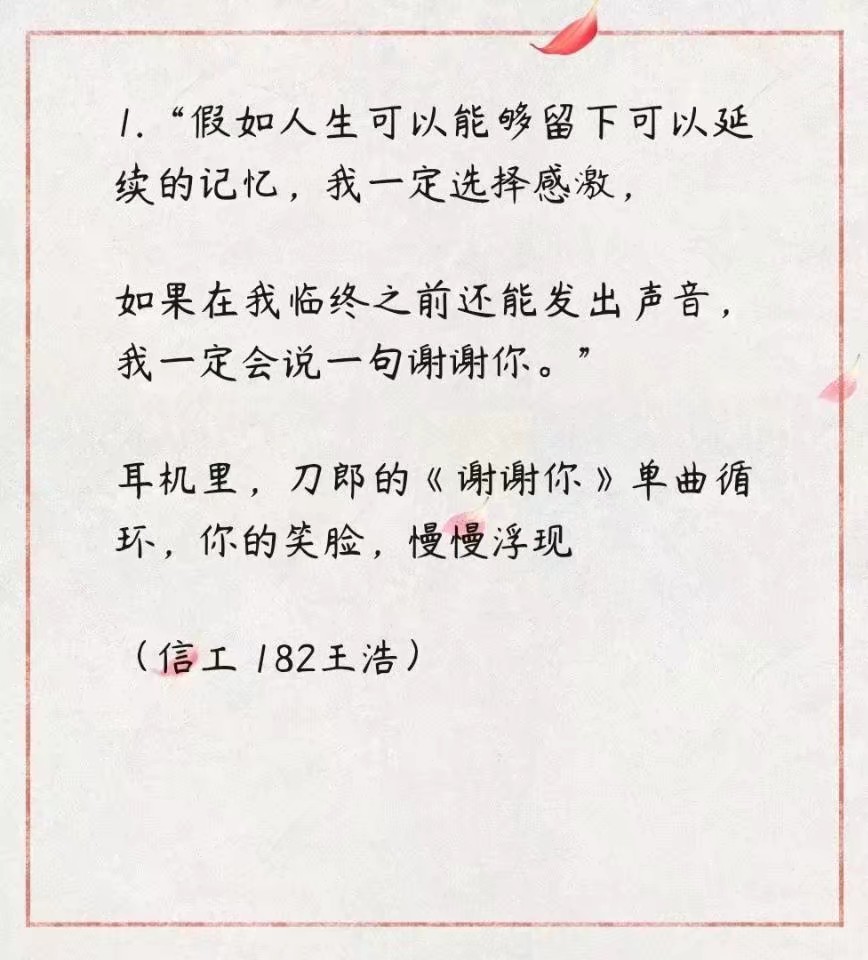 1.“假如人生可以能够留下可以延
续的记忆，我一定选择感激，
如果在我临终之前还能发出声音，
我一定会说一句谢谢你。”
耳机里，刀郎的《谢谢你》单曲循
环，你的笑脸，慢慢浮现
（信工 182王浩）